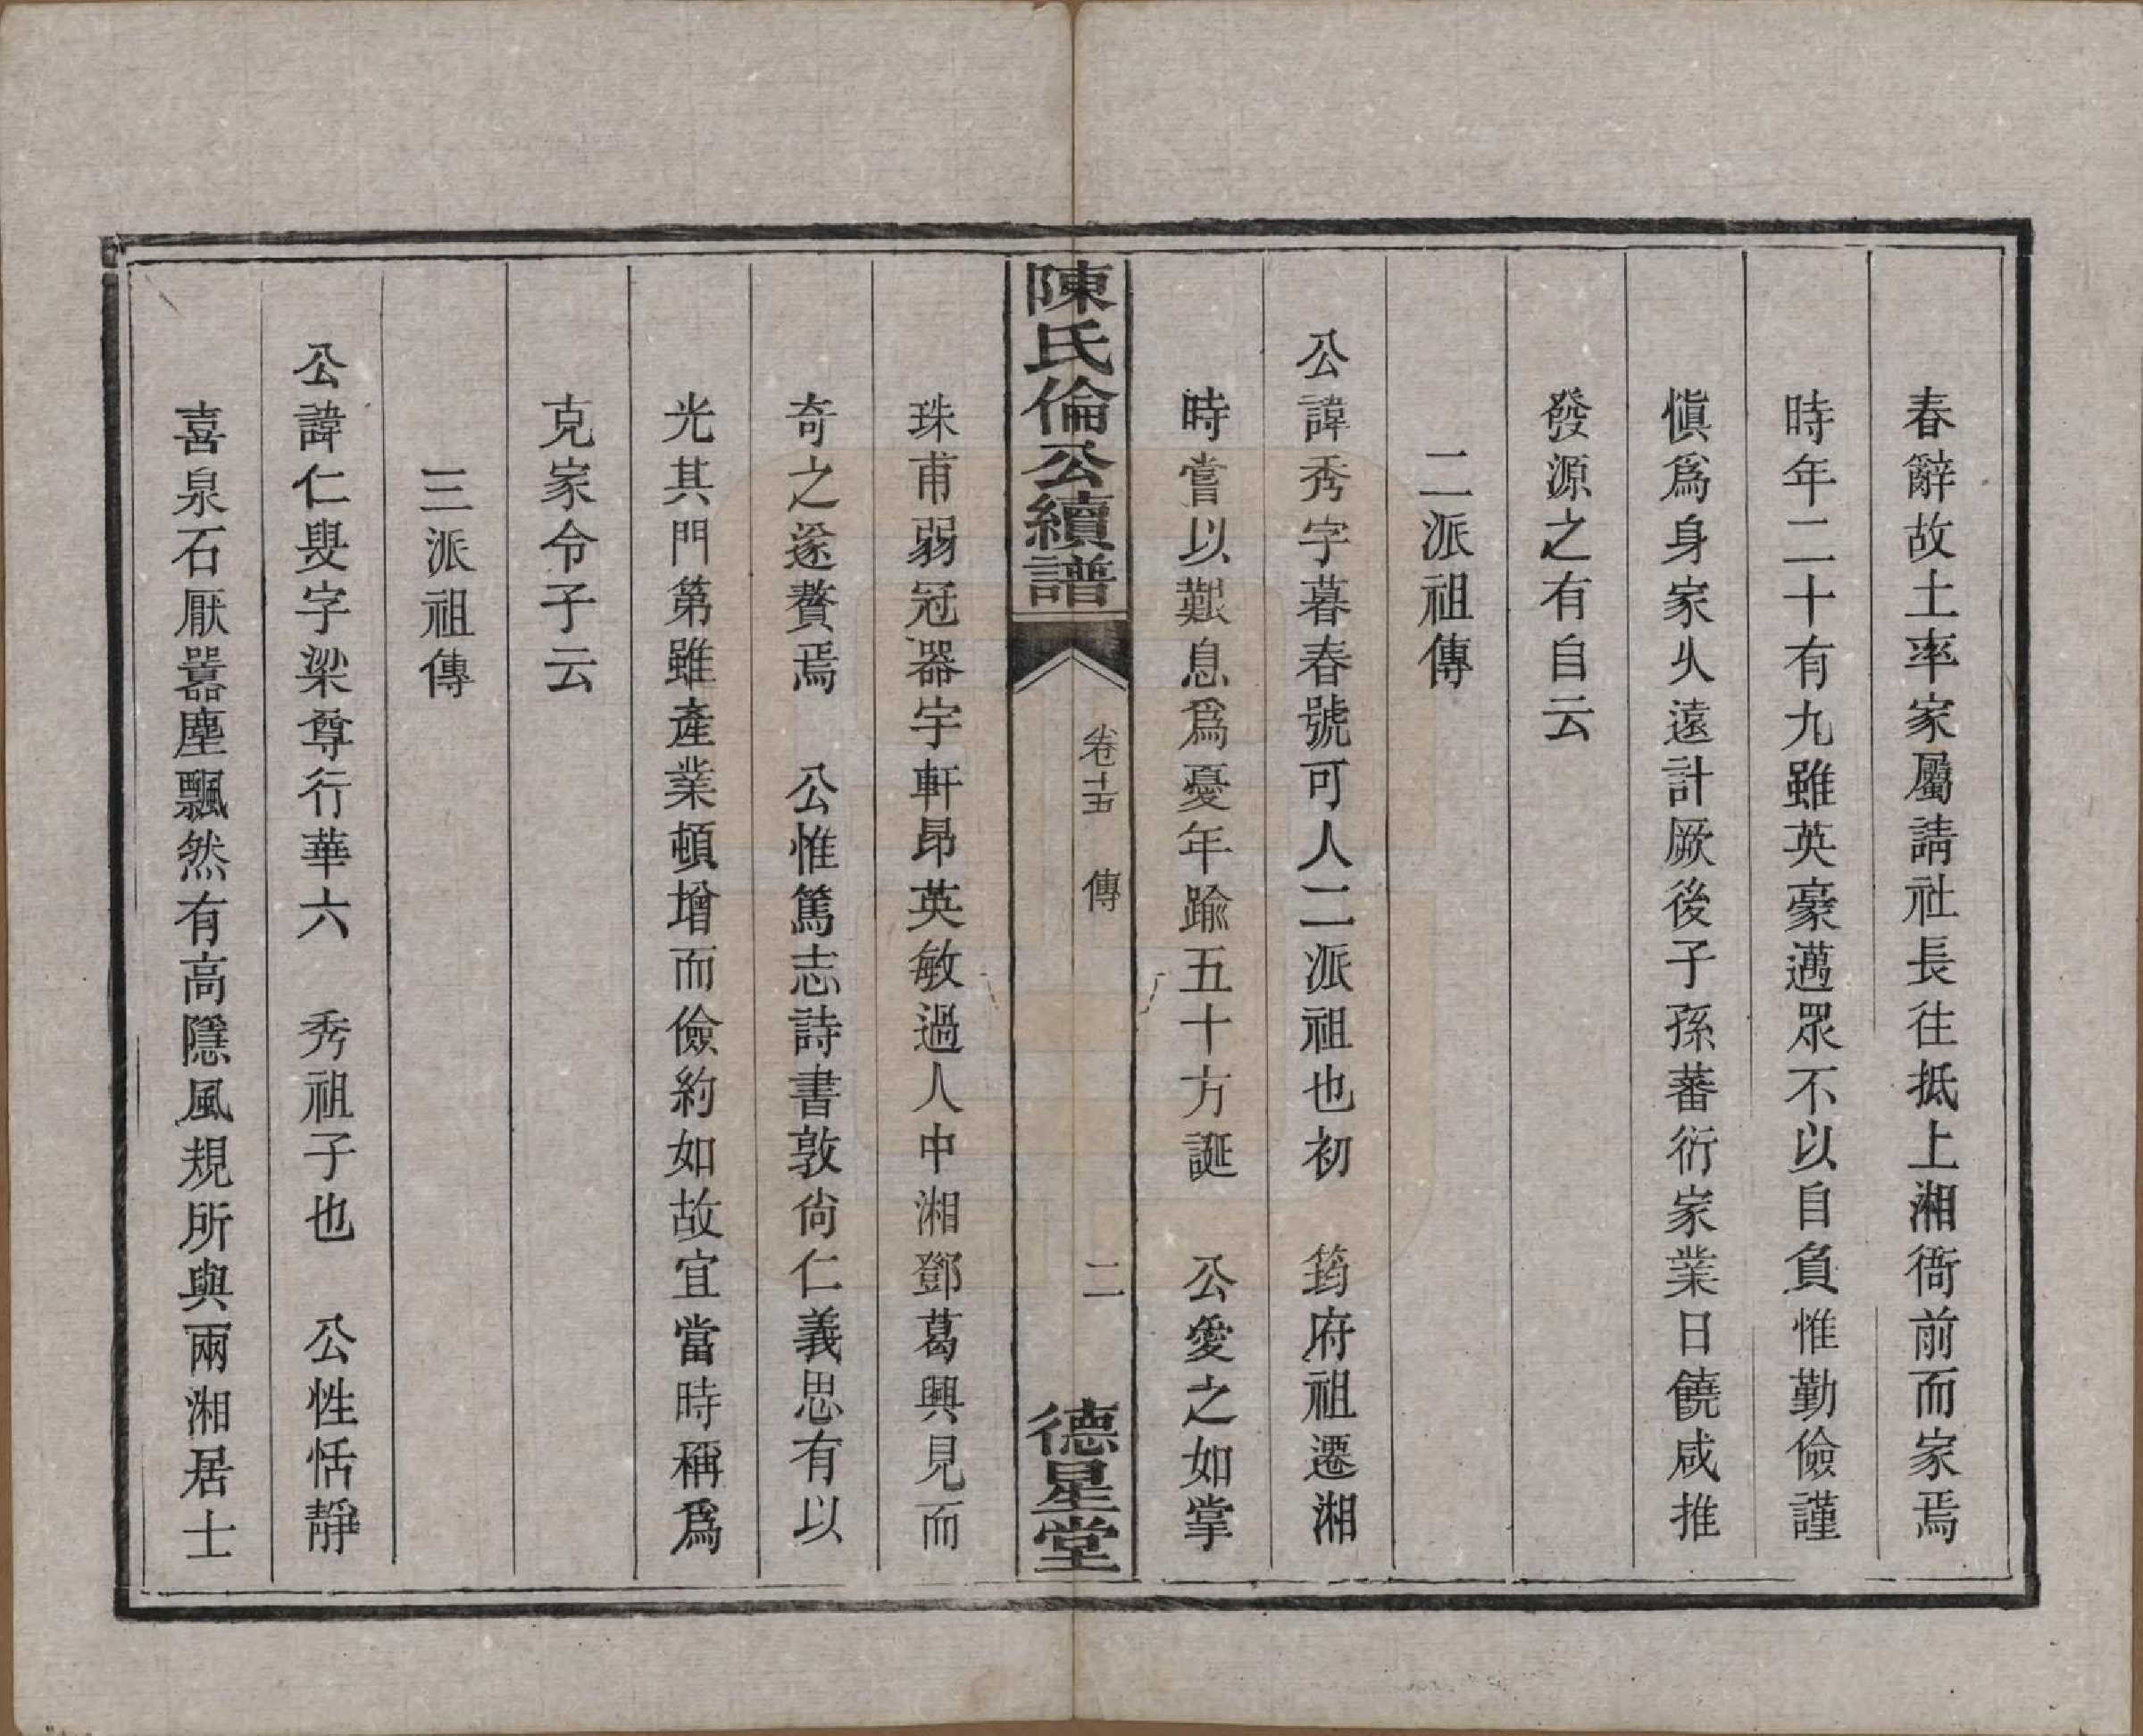 春辭故土率家屬請社長往抵上湘衙前而家焉
時年二十有九雖英豪邁眾不以自負惟勤儉謹
愼爲身家久遠計厥後子孫蕃衍家業日饒咸推
發源之有自云
二派祖傳
公諱秀字暮春號可人二派祖也初　筠府祖遷湘
時嘗以艱息爲憂年踰五十方誕　公愛之如掌
陳氏倫公續譜
卷十五　傳
二
德星堂
珠甫弱冠器宇軒昂英敏過人中湘鄧葛興見而
奇之遂贅焉　公惟篤志詩書敦尙仁義思有以
光其門第雖產業頓增而儉約如故宜當時稱爲
克家令子云
三派祖傳
公諱仁叟字梁尊行華六　秀祖子也　公性恬靜
喜泉石厭囂塵飄然有高隱風規所與兩湘居士